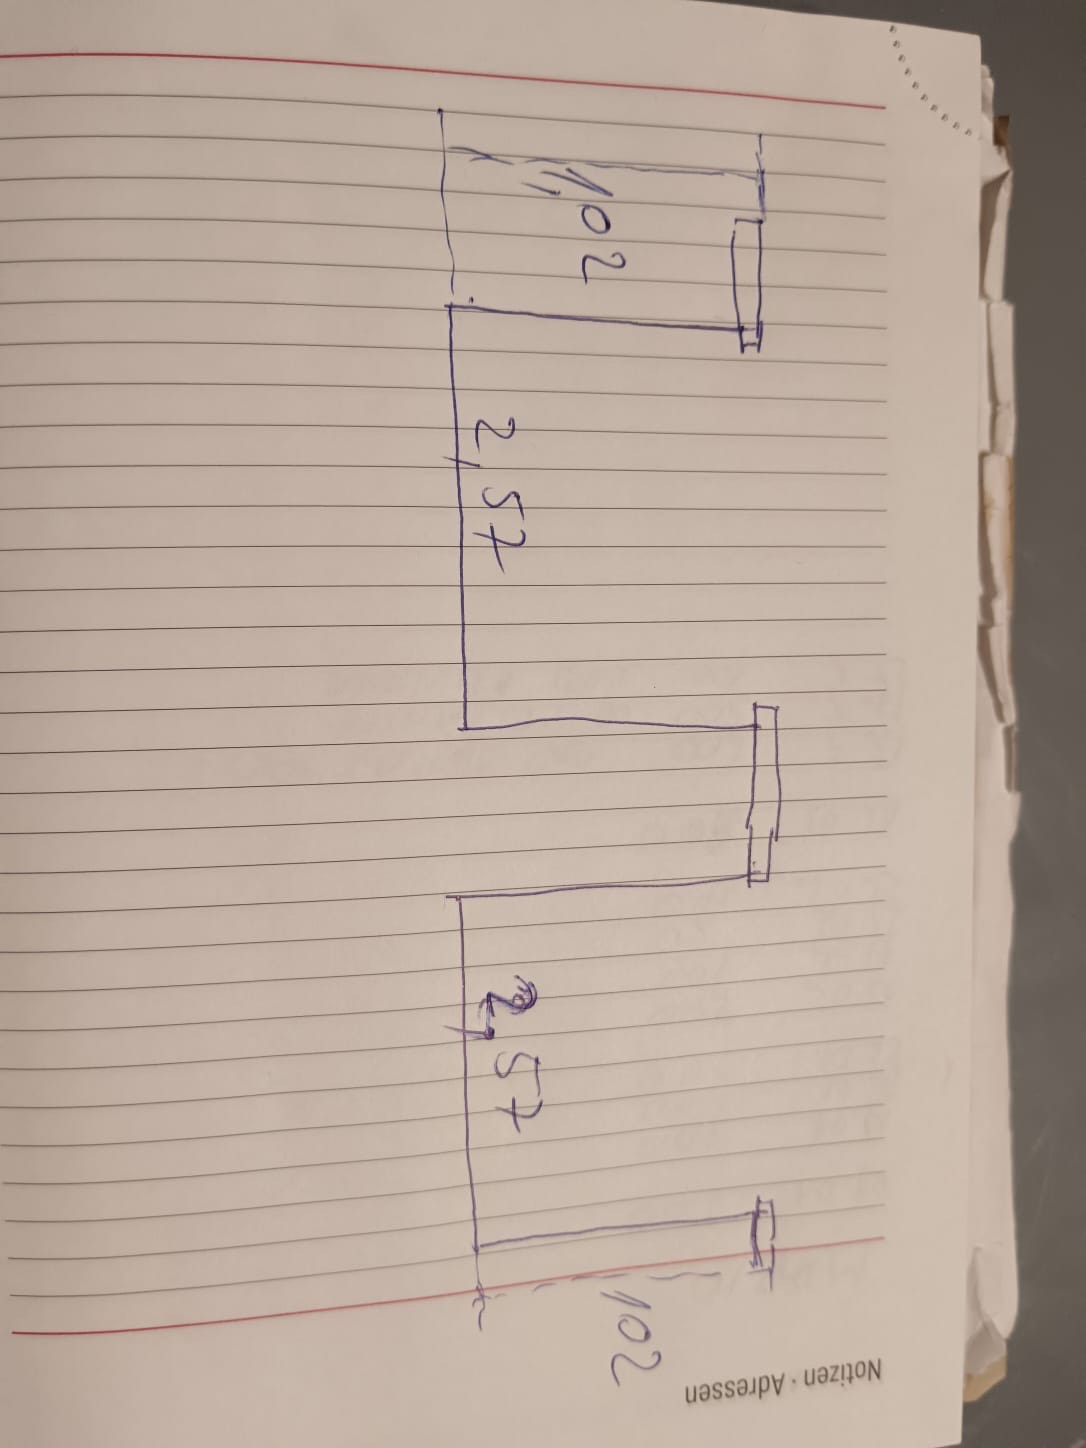 1,02
2,57
2,57
102
Notizen · Adressen